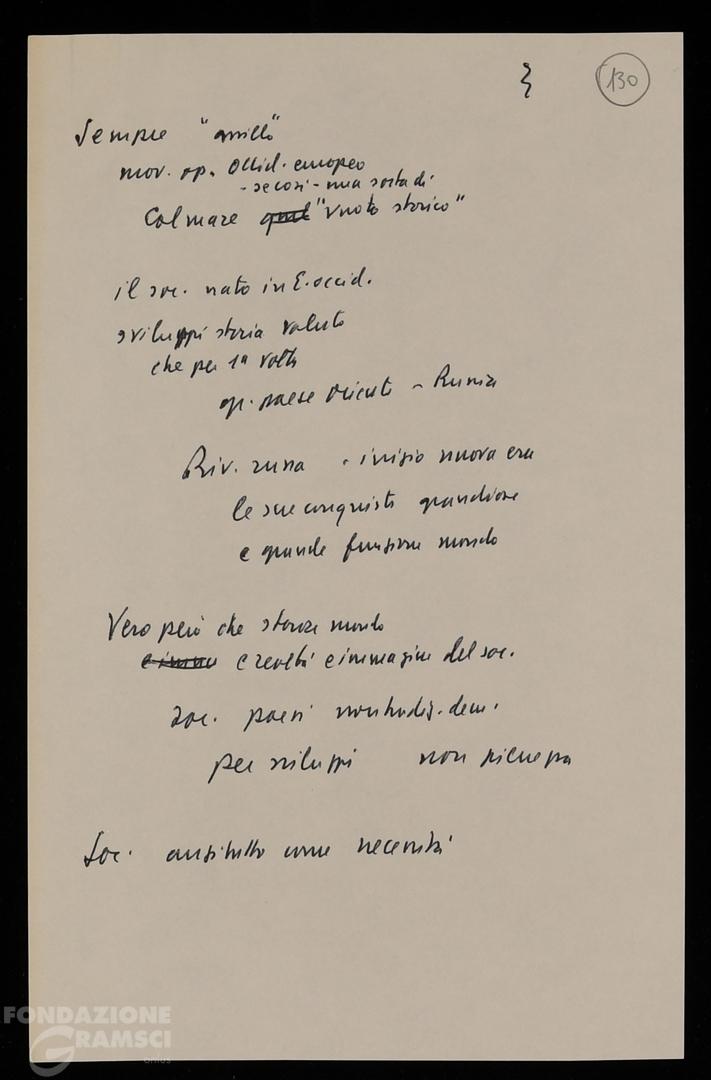 3
130
Sempre "assillo"
mov. op. Occid. europeo
- se così - una sorta di
Colmare quel "vuoto storico"
il soc. nato in E. occid.
sviluppi storia voluto
che per 1ª volta
op. paese Oriente - Russia
Riv. russa - inizio nuova era
le sue conquiste grandiose
e grande funzione mondo
Vero però che mondo
e realtà e immagine del soc.
soc. paesi non tradiz. dem.
per sviluppi non pienezza
Soc. anzitutto come necessità
FONDAZIONE
GRAMSCI
onlus